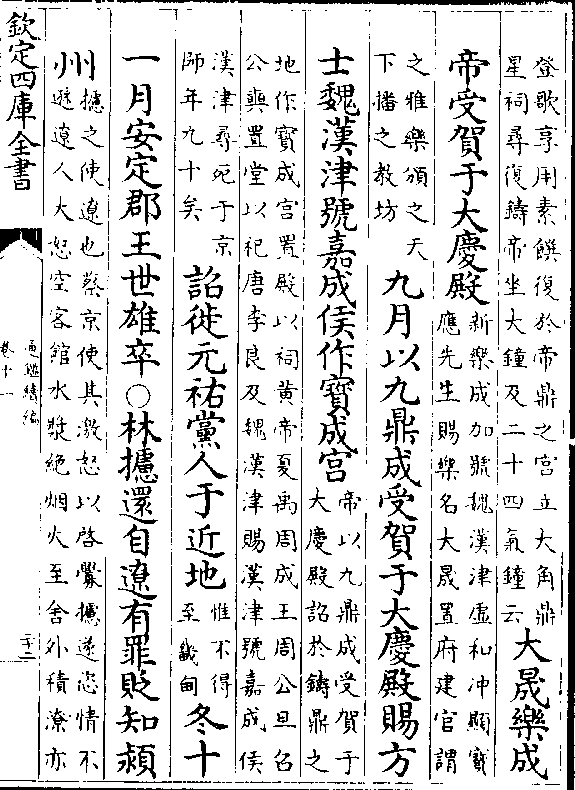 登歌享用素饌復於帝鼎之宮立大角鼎
星祠尋復鑄帝坐大鐘及二十四氣鐘云
大晟樂成
帝受賀于大慶殿
新樂成加號魏漢津虛和冲顯寶
應先生賜樂名大晟置府建官謂
之雅樂頒之天
下播之教坊
九月以九鼎成受賀于大慶殿賜方
士魏漢津號嘉成侯作寶成宮
帝以九鼎成受賀于
大慶殿詔於鑄鼎之
地作寶成宮置殿以祠黃帝夏禹周成王周公旦召
公奭置堂以祀唐李良及魏漢津賜漢津號嘉成侯
漢津尋死于京
師年九十矣
詔徙元祐黨人于近地
惟不得
至畿甸
冬十
一月安定郡王世雄卒○林攄還自遼有罪貶知潁
州
攄之使遼也蔡京使其激怒以啓釁攄遂恣情不
遜遼人大怒空客館水漿絕烟火至舍外積潦亦
欽定四庫全書
通鑑續編
卷十一